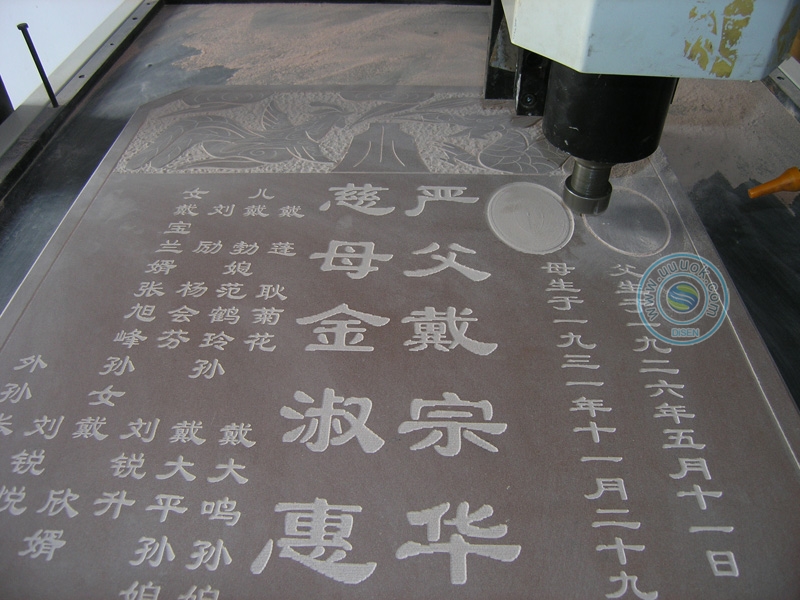 父生于一九二六年五月十一日
母生于一九三一年十一月二十九
严父戴宗华
慈母金淑惠
儿
戴蓬
戴勃
刘励
女
戴宝兰
媳
耿菊花
范鹤玲
杨会芬
婿
张旭峰
孙
戴大鸣
孙媳
戴大平
孙媳
刘锐升
孙女
戴欣
婿
外孙
刘锐悦
WWW.UUUOK.COM
DISEN